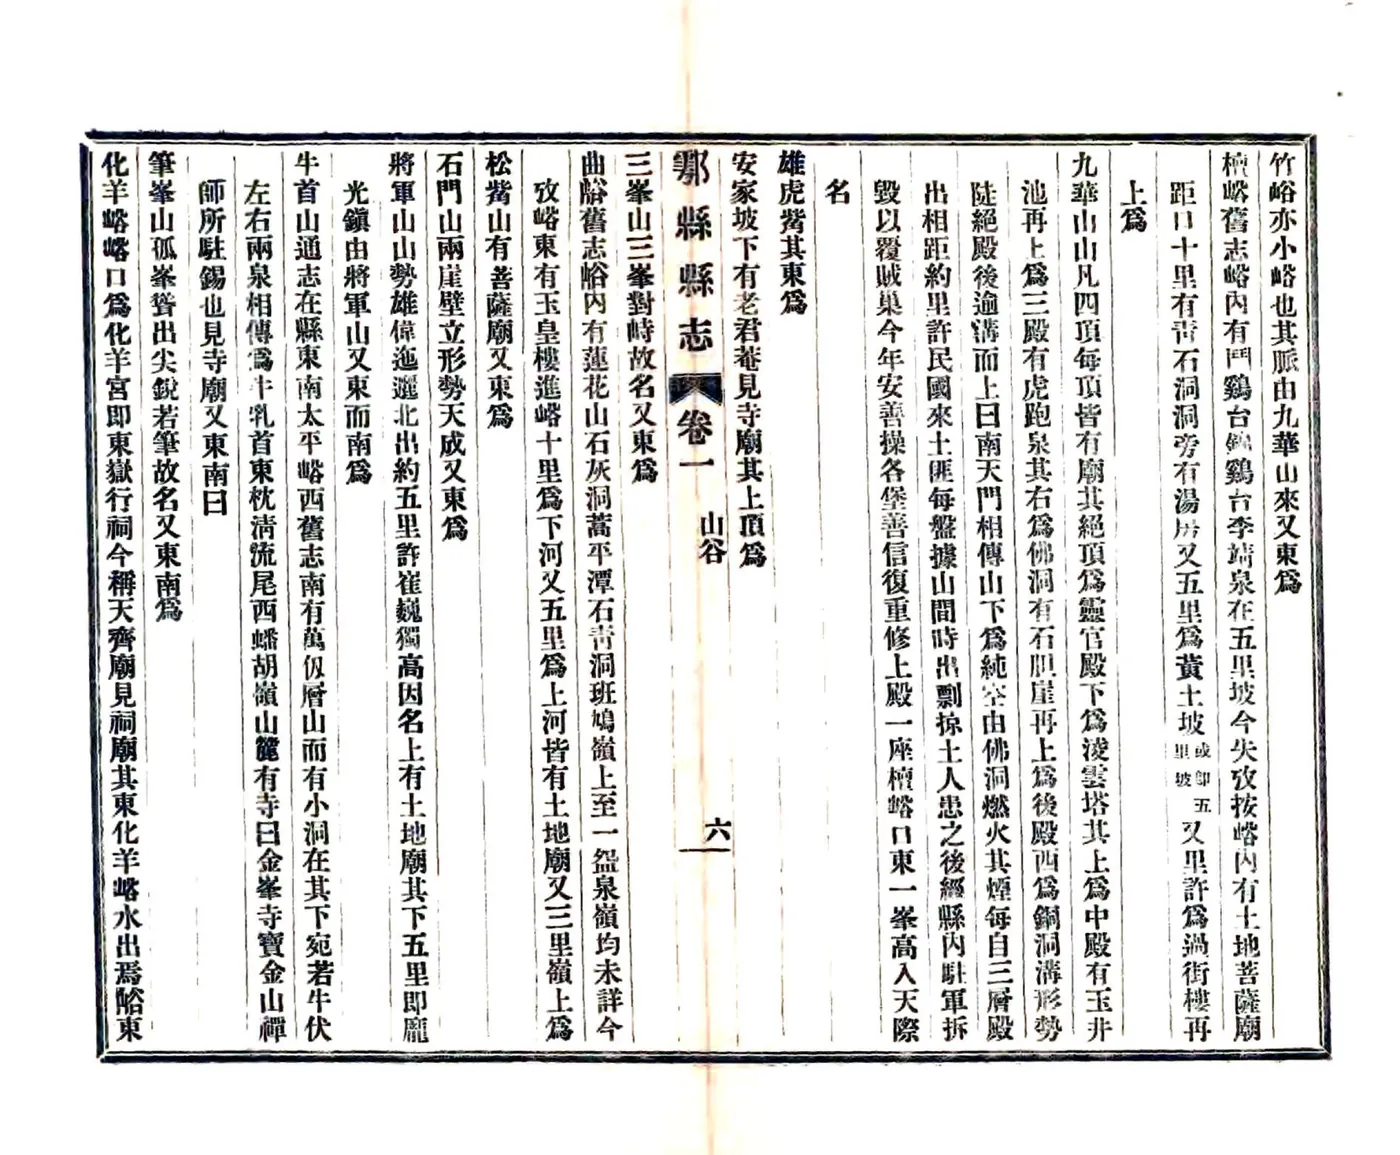 竹峪亦小峪也其脈由九華山來又東爲
檀峪舊志峪內有鬥鷄台錦鷄台李靖泉在五里坡今失攷按峪內有土地菩薩廟
距口十里有靑石洞洞旁有湯房又五里爲黃土坡或卽五里坡又里許爲過街樓再
上爲
九華山山凡四頂每頂皆有廟其絕頂爲靈官殿下爲淩雲塔其上爲中殿有玉井
池再上爲三殿有虎跑泉其右爲佛洞有石胆崖再上爲後殿西爲銅洞溝形勢
陡絕殿後逾溝而上曰南天門相傳山下爲純空由佛洞燃火其煙每自三層殿
出相距約里許民國來土匪每盤據山間時出剽掠土人患之後經縣內駐軍拆
毀以覆賊巢今年安善操各堡善信復重修上殿一座檀峪口東一峯高入天際
名
雄虎觜其東爲
安家坡下有老君菴見寺廟其上頂爲
鄠縣縣志 卷一 山谷 六
三峯山三峯對峙故名又東爲
曲峪舊志峪內有蓮花山石灰洞蒿平潭石靑洞班鳩嶺上至一盌泉嶺均未詳今
攷峪東有玉皇樓進峪十里爲下河又五里爲上河皆有土地廟又三里嶺上爲
松觜山有菩薩廟又東爲
石門山兩崖壁立形勢天成又東爲
將軍山山勢雄偉迤邐北出約五里許崔巍獨高因名上有土地廟其下五里即龐
光鎭由將軍山又東而南爲
牛首山通志在縣東南太平峪西舊志南有萬仭層山而有小洞在其下宛若牛伏
左右兩泉相傳爲牛乳首東枕淸流尾西蟠胡嶺山麓有寺曰金峯寺寶金山禪
師所駐錫也見寺廟又東南曰
筆峯山孤峯聳出尖銳若筆故名又東南爲
化羊峪峪口爲化羊宮即東嶽行祠今稱天齊廟見祠廟其東化羊峪水出焉峪東